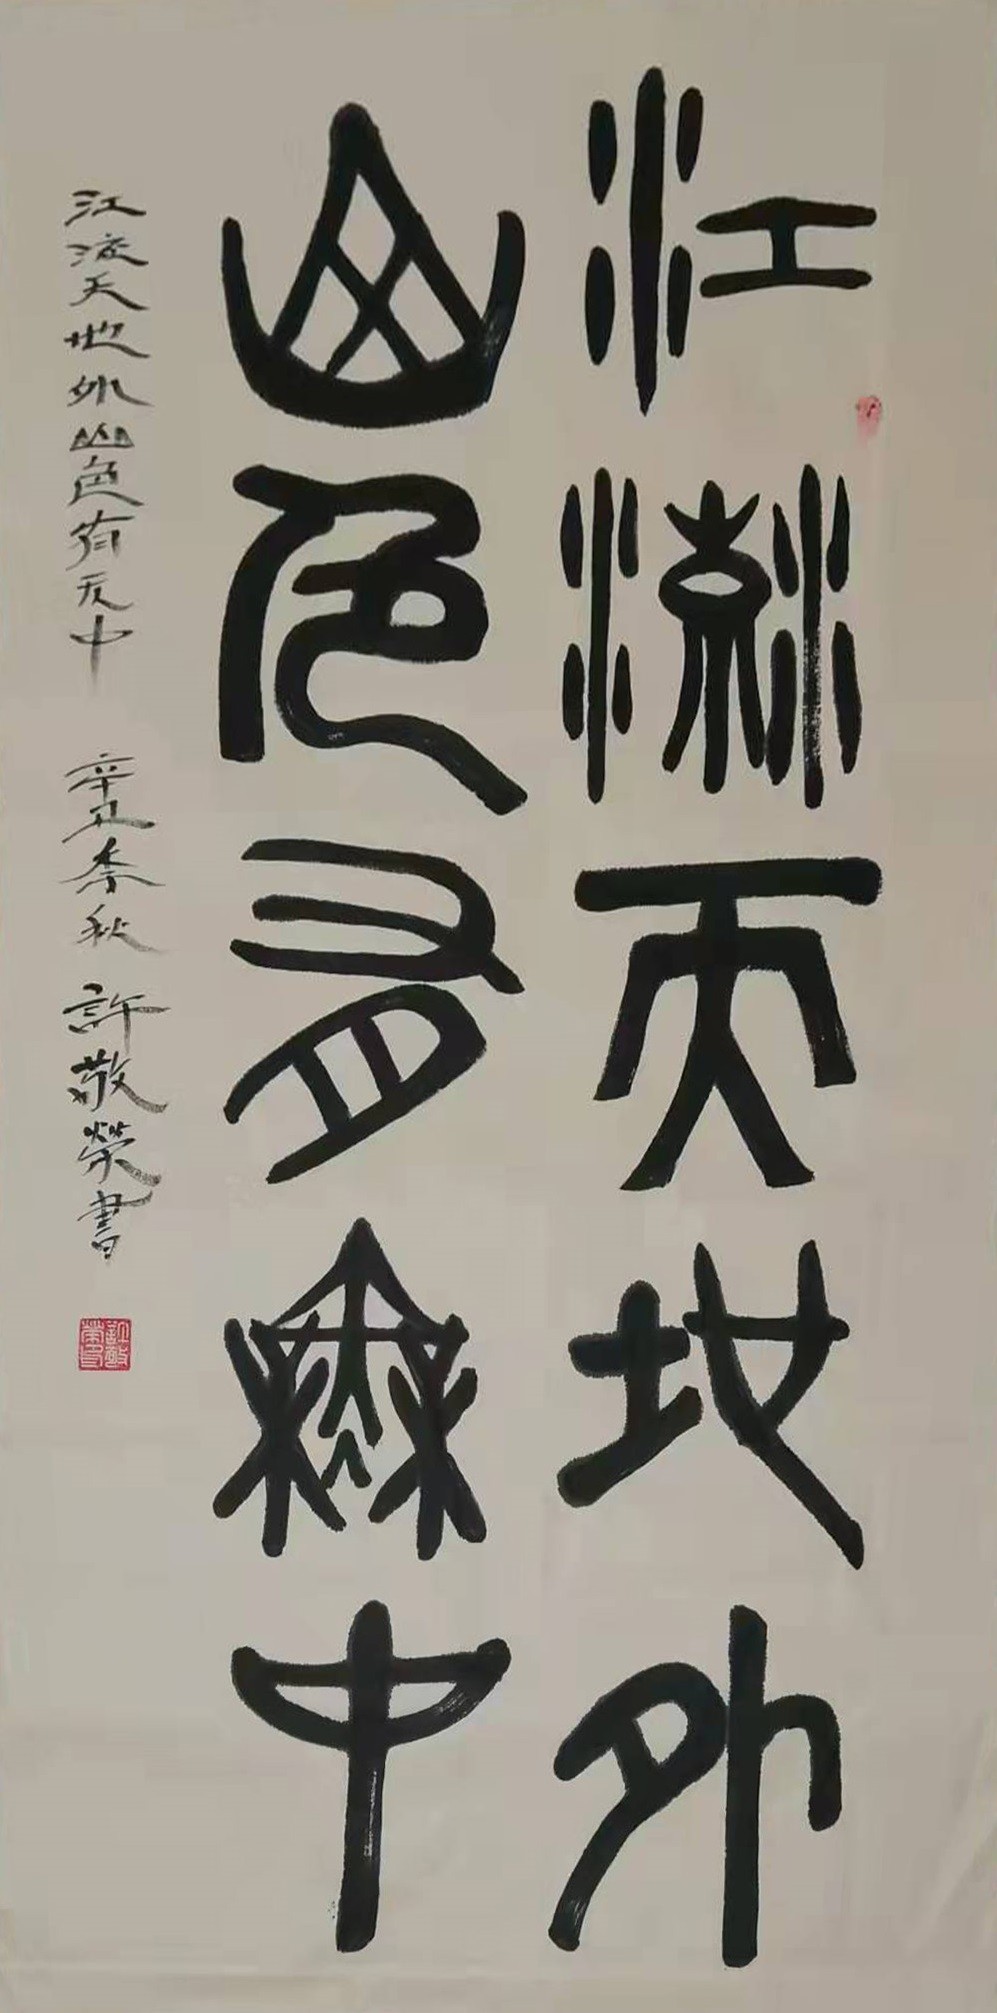 江流天地外
山色有無中
江流天地外山色有无中
辛丑季秋 許敬榮書